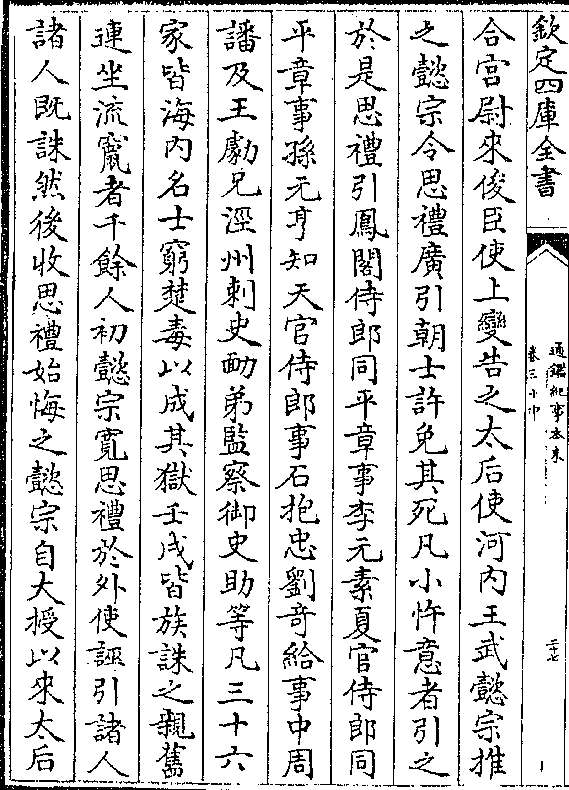 欽定四庫全書
通鑑紀事本末
卷三十中
二十七
合宫尉來俊臣使上變告之太后使河内王武懿宗推
之懿宗令思禮廣引朝士許免其死凡小忤意者引之
於是思禮引鳳閣侍郎同平章事李元素夏官侍郎同
平章事孫元亨知天官侍郎事石抱忠劉奇給事中周
譒及王勮兄涇州刺史勔弟監察御史助等凡三十六
家皆海内名士窮楚毒以成其獄壬戌皆族誅之親舊
連坐流竄者千餘人初懿宗寛思禮於外使誣引諸人
諸人既誅然後收思禮始悔之懿宗自天授以來太后